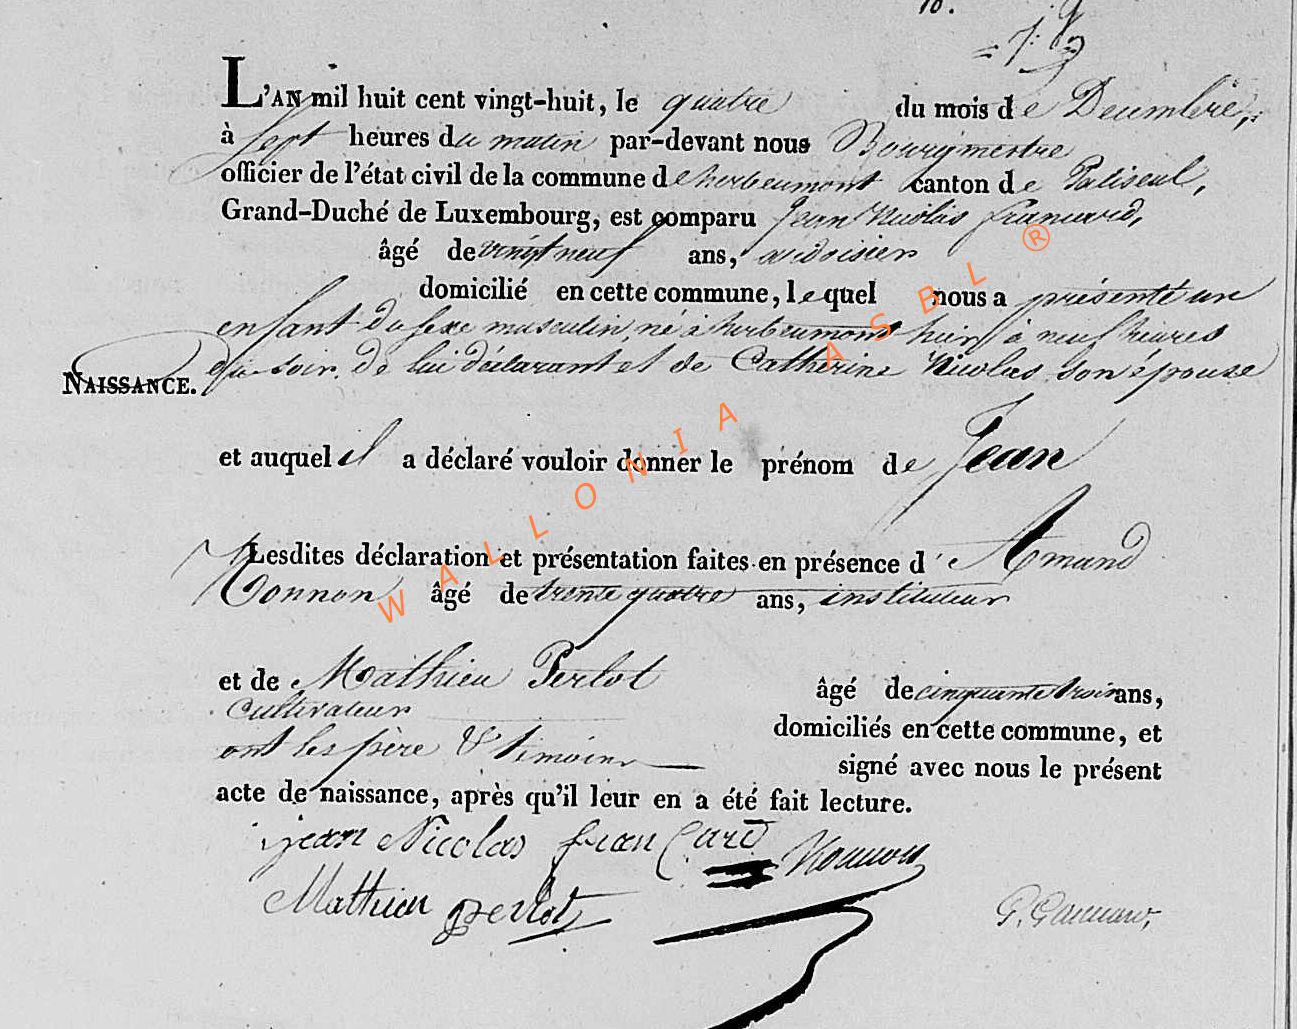 10.
L'AN mil huit cent vingt-huit, le quatre du mois de Decembre,
à sept heures du matin par-devant nous Bourgmestre
officier de l'état civil de la commune de herbeumont canton de Paliseul,
Grand-Duché de Luxembourg, est comparu Jean Nicolas Francard,
âgé de vingt neuf ans, ardoisier
domicilié en cette commune, lequel nous a présenté un
enfant du sexe masculin, né à herbeumont hier à neuf heures
du soir, de lui déclarant et de Catherine Nicolas son épouse
NAISSANCE.
et auquel il a déclaré vouloir donner le prénom de Jean
Lesdites déclaration et présentation faites en présence d'Amand
Nonnon âgé de trente quatre ans, instituteur
et de Mathieu Perlot âgé de cinquante trois ans,
cultivateur domiciliés en cette commune, et
ont les père & témoins signé avec nous le présent
acte de naissance, après qu'il leur en a été fait lecture.
jean Nicolas franCard Nonnon
Mathieu perlot
WALLONIA ASBL ®